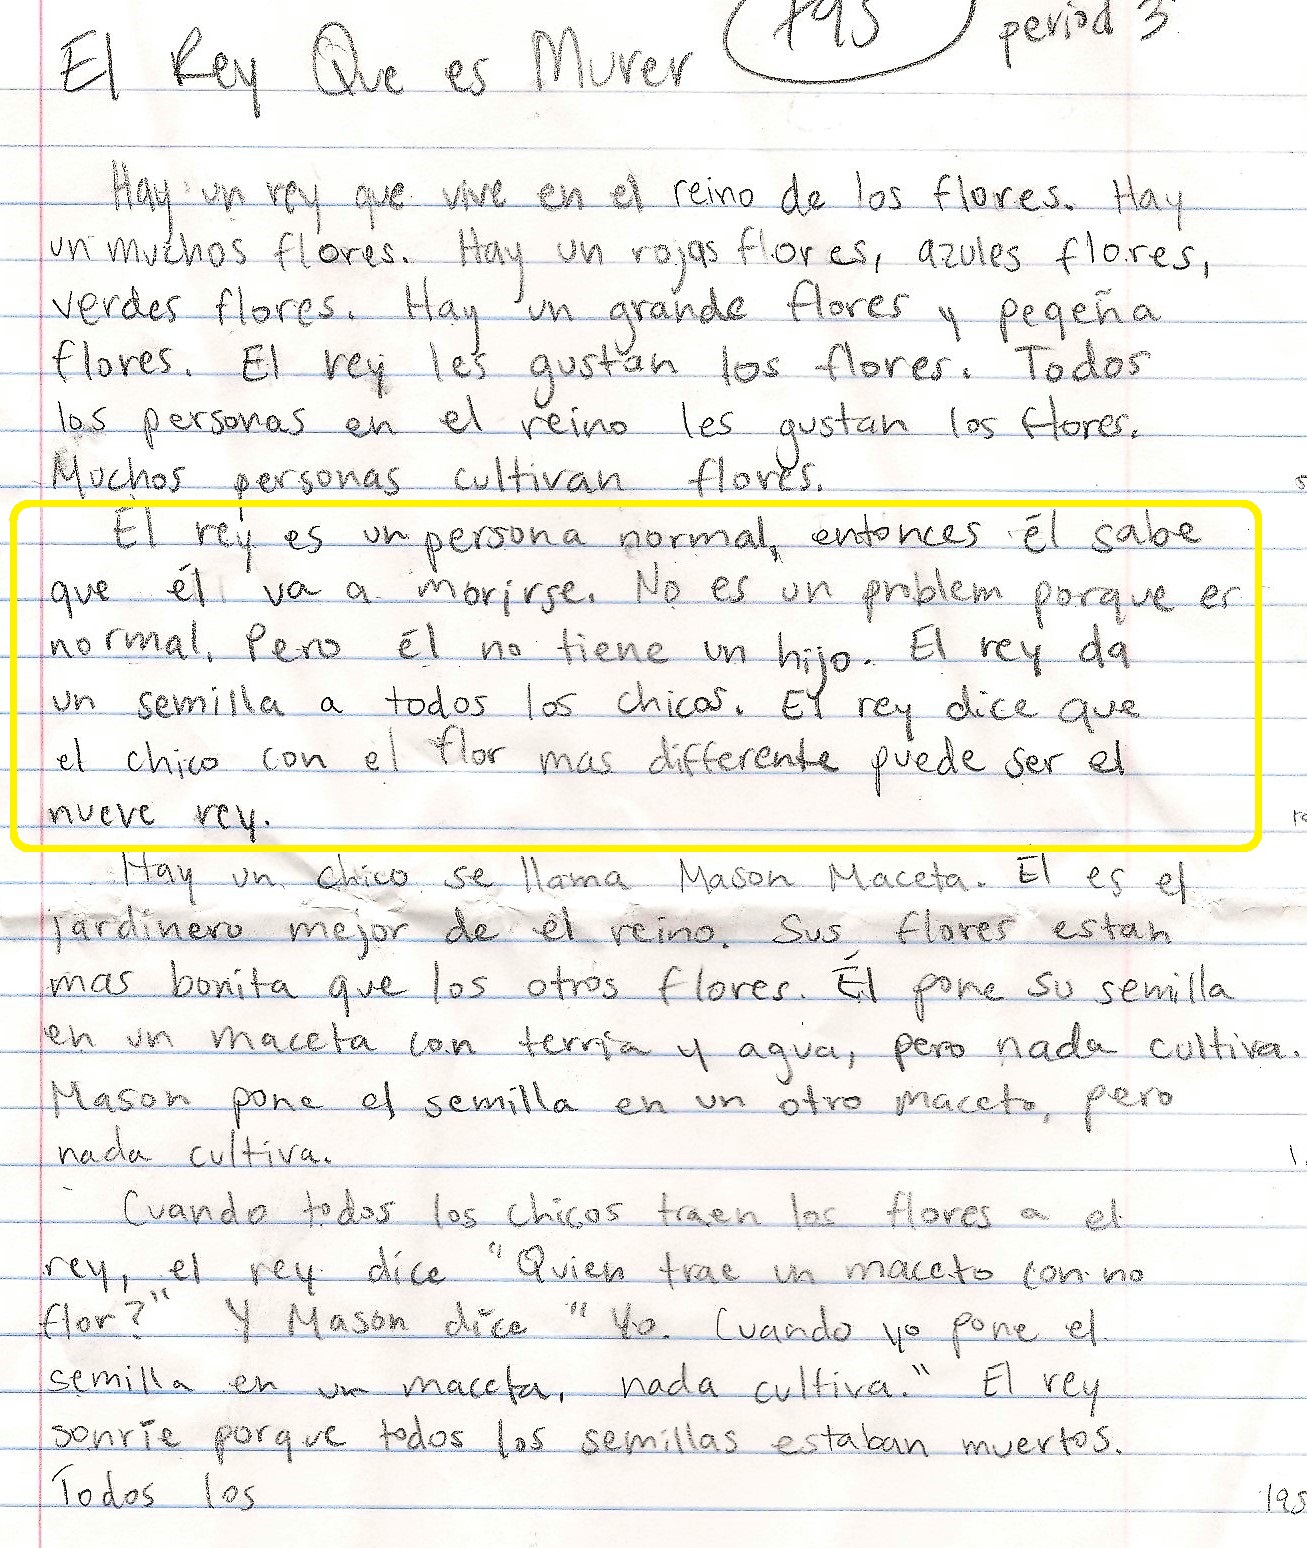 195 period 3
El Rey Que es Murer
Hay un rey que vive en el reino de los flores. Hay
un muchos flores. Hay un rojas flores, azules flores,
verdes flores. Hay un grande flores y peqeña
flores. El rey les gustan los flores. Todos
los personas en el reino les gustan los flores.
Muchos personas cultivan flores.
El rey es un persona normal, entonces él sabe
que él va a morirse. No es un problem porque es
normal. Pero él no tiene un hijo. El rey da
un semilla a todos los chicos. El rey dice que
el chico con el flor mas differente puede ser el
nueve rey.
Hay un chico se llama Mason Maceta. El es el
jardinero mejor de el reino. Sus flores estan
mas bonita que los otros flores. Él pone su semilla
en un maceta con terria y agua, pero nada cultiva.
Mason pone el semilla en un otro maceto, pero
nada cultiva.
Cuando todos los chicos traen los flores a el
rey, el rey dice "Quien trae un maceto con no
flor?" Y Mason dice "Yo. Cuando yo pone el
semilla en un maceta, nada cultiva." El rey
sonríe porque todos los semillas estaban muertos.
Todos los
195